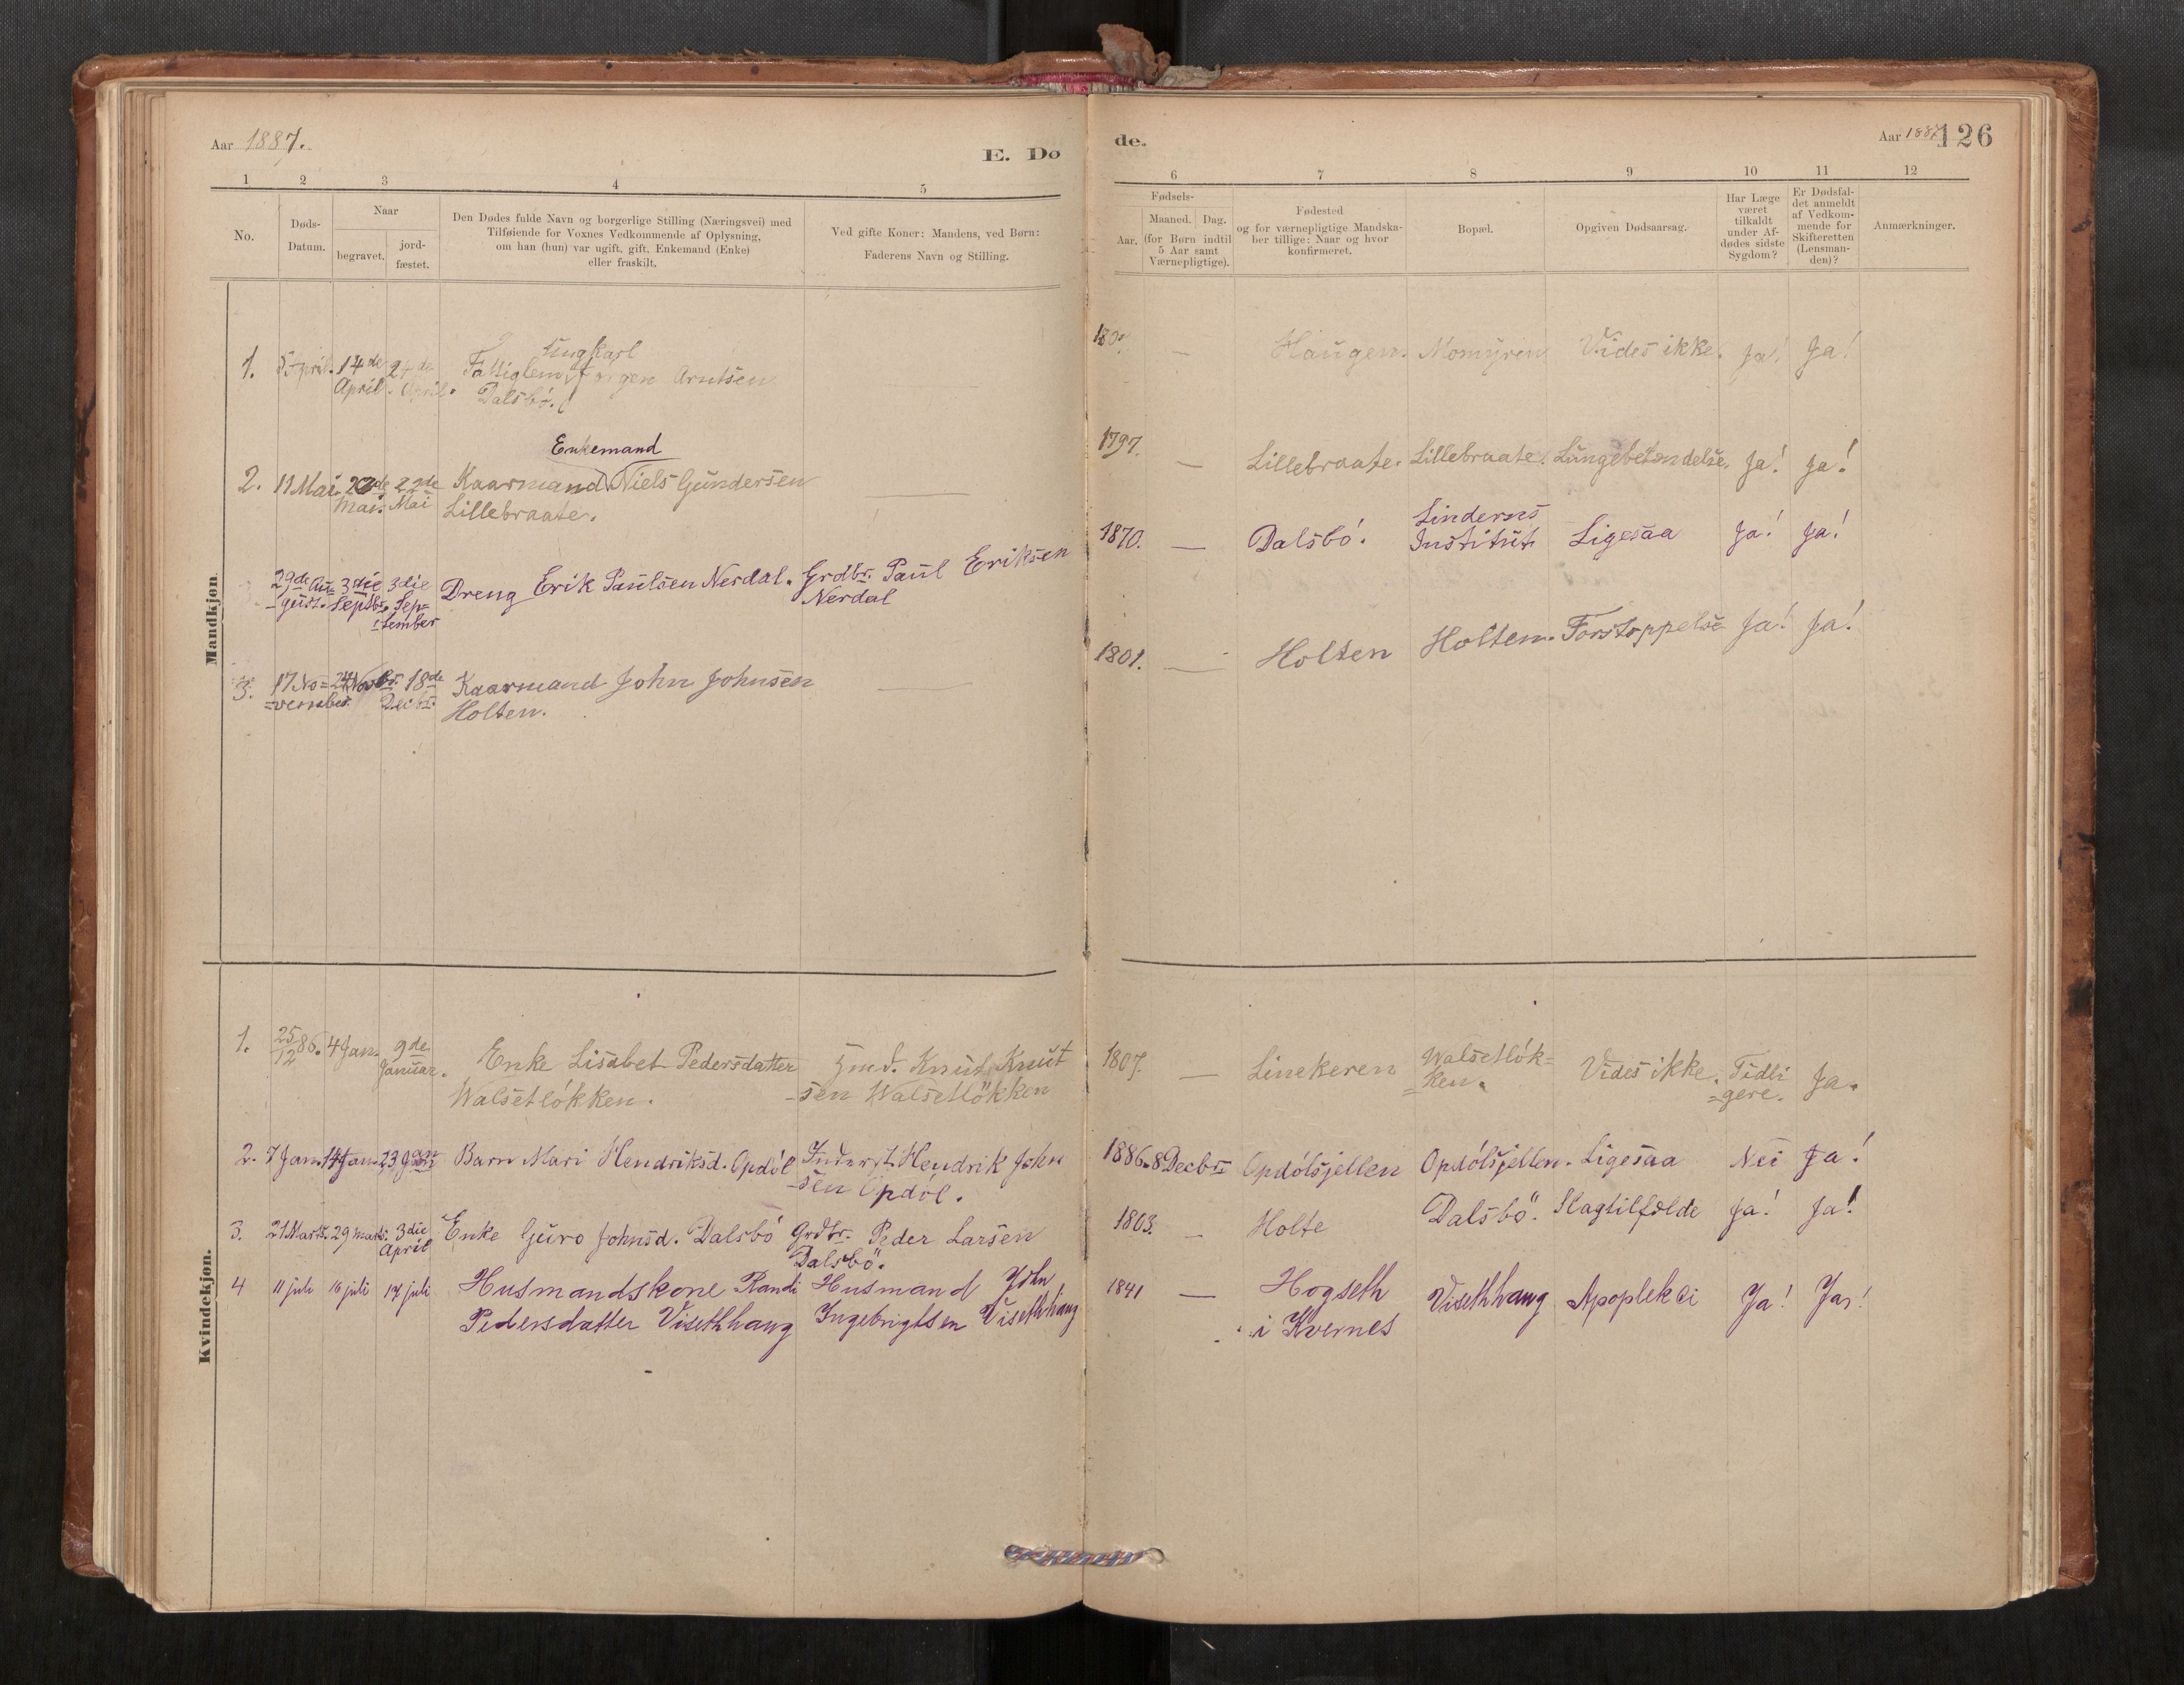 Aar 1887.
E. Dø
1 2 3 4 5
No.
Døds-
Datum.
Naar
begravet.
jord-
fæstet.
Den Dødes fulde Navn og borgerlige Stilling (Næringsvei) med
Tilføiende for Voxnes Vedkommende af Oplysning,
om han (hun) var ugift, gift, Enkemand (Enke)
eller fraskilt.
Ved gifte Koner: Mandens, ved Børn:
Faderens Navn og Stilling.
Mandkjøn
Ungkarl
1. 5 April. 14de 24de Fattiglem Jørgen Arntsen
April. April. Dalsbó.
Enkemand
2. 11 Mai. 22de Kaarmand Niels Gundersen
Mai. Mai Lillebraate.
29de Au= 3die 3die Dreng Erik Paulsen Nerdal. Grdbr. Paul Eriksen
gust. Septbr. Sep= Nerdal
tember
3. 17 No= 24 Novbr. 18de Kaarmand John Johnsen
=vember. Decbr. Holten.
Kvindekjøn.
1. 25/12 86. 4 Jan. 9de Enke Lisabet Pedersdatter Hmd. Knut Knut
Januar. Walsetlókken. -sen Walsetlökken
2. 7 Jan. 14 Jan. 23 Jan Barn Mari Hendriksd. Opdöl Inderst. Hendrik John
-sen Opdól.
3. 21 Marts. 29 marts. 3die Enke Guro Johnsd. Dalsbó Grdbr. Peder Larsen
April Dalsbö.
4 11 juli 16 juli 17 juli Husmandskone Randi Husmand John
Pedersdatter Visethhaug Ingebrigtsen Visethhaug
de.
Aar 1887
126
6 7 8 9 10 11 12
Fødsels-
Aar.
Maaned. Dag.
(for Børn indtil
5 Aar samt
Værnepligtige).
Fødested
og for værnepligtige Mandska-
ber tillige: Naar og hvor
konfirmeret.
Bopæl.
Opgiven Dødsaarsag.
Har Læge
været
tilkaldt
under Af-
dødes sidste
Sygdom?
Er Dødsfal-
det anmeldt
af Vedkom-
mende for
Skifteretten
(Lensman-
den)?
Anmærkninger.
— Haugen. Momyren Vides ikke. Ja! Ja!
1797. — Lillebraate. Lillebraate. Lungebetændelse. Ja! Ja!
Linderns
1870. — Dalsbó. Institut Ligesaa Ja! Ja!
1801. — Holten Holten. Forstoppelse Ja! Ja!
1807. — Linekeren Walsetlók= Vides ikke. Tidli Ja.
=ken. =gere.
1886. 8 Decbr Opdólsjellen Opdólsjellen. Ligesaa Nei Ja!
1803. — Holte Dalsbö. Slagtilfælde Ja! Ja!
1841 — Hogseth Visethhaug Apoplekci Ja! Ja!
i Kvernes